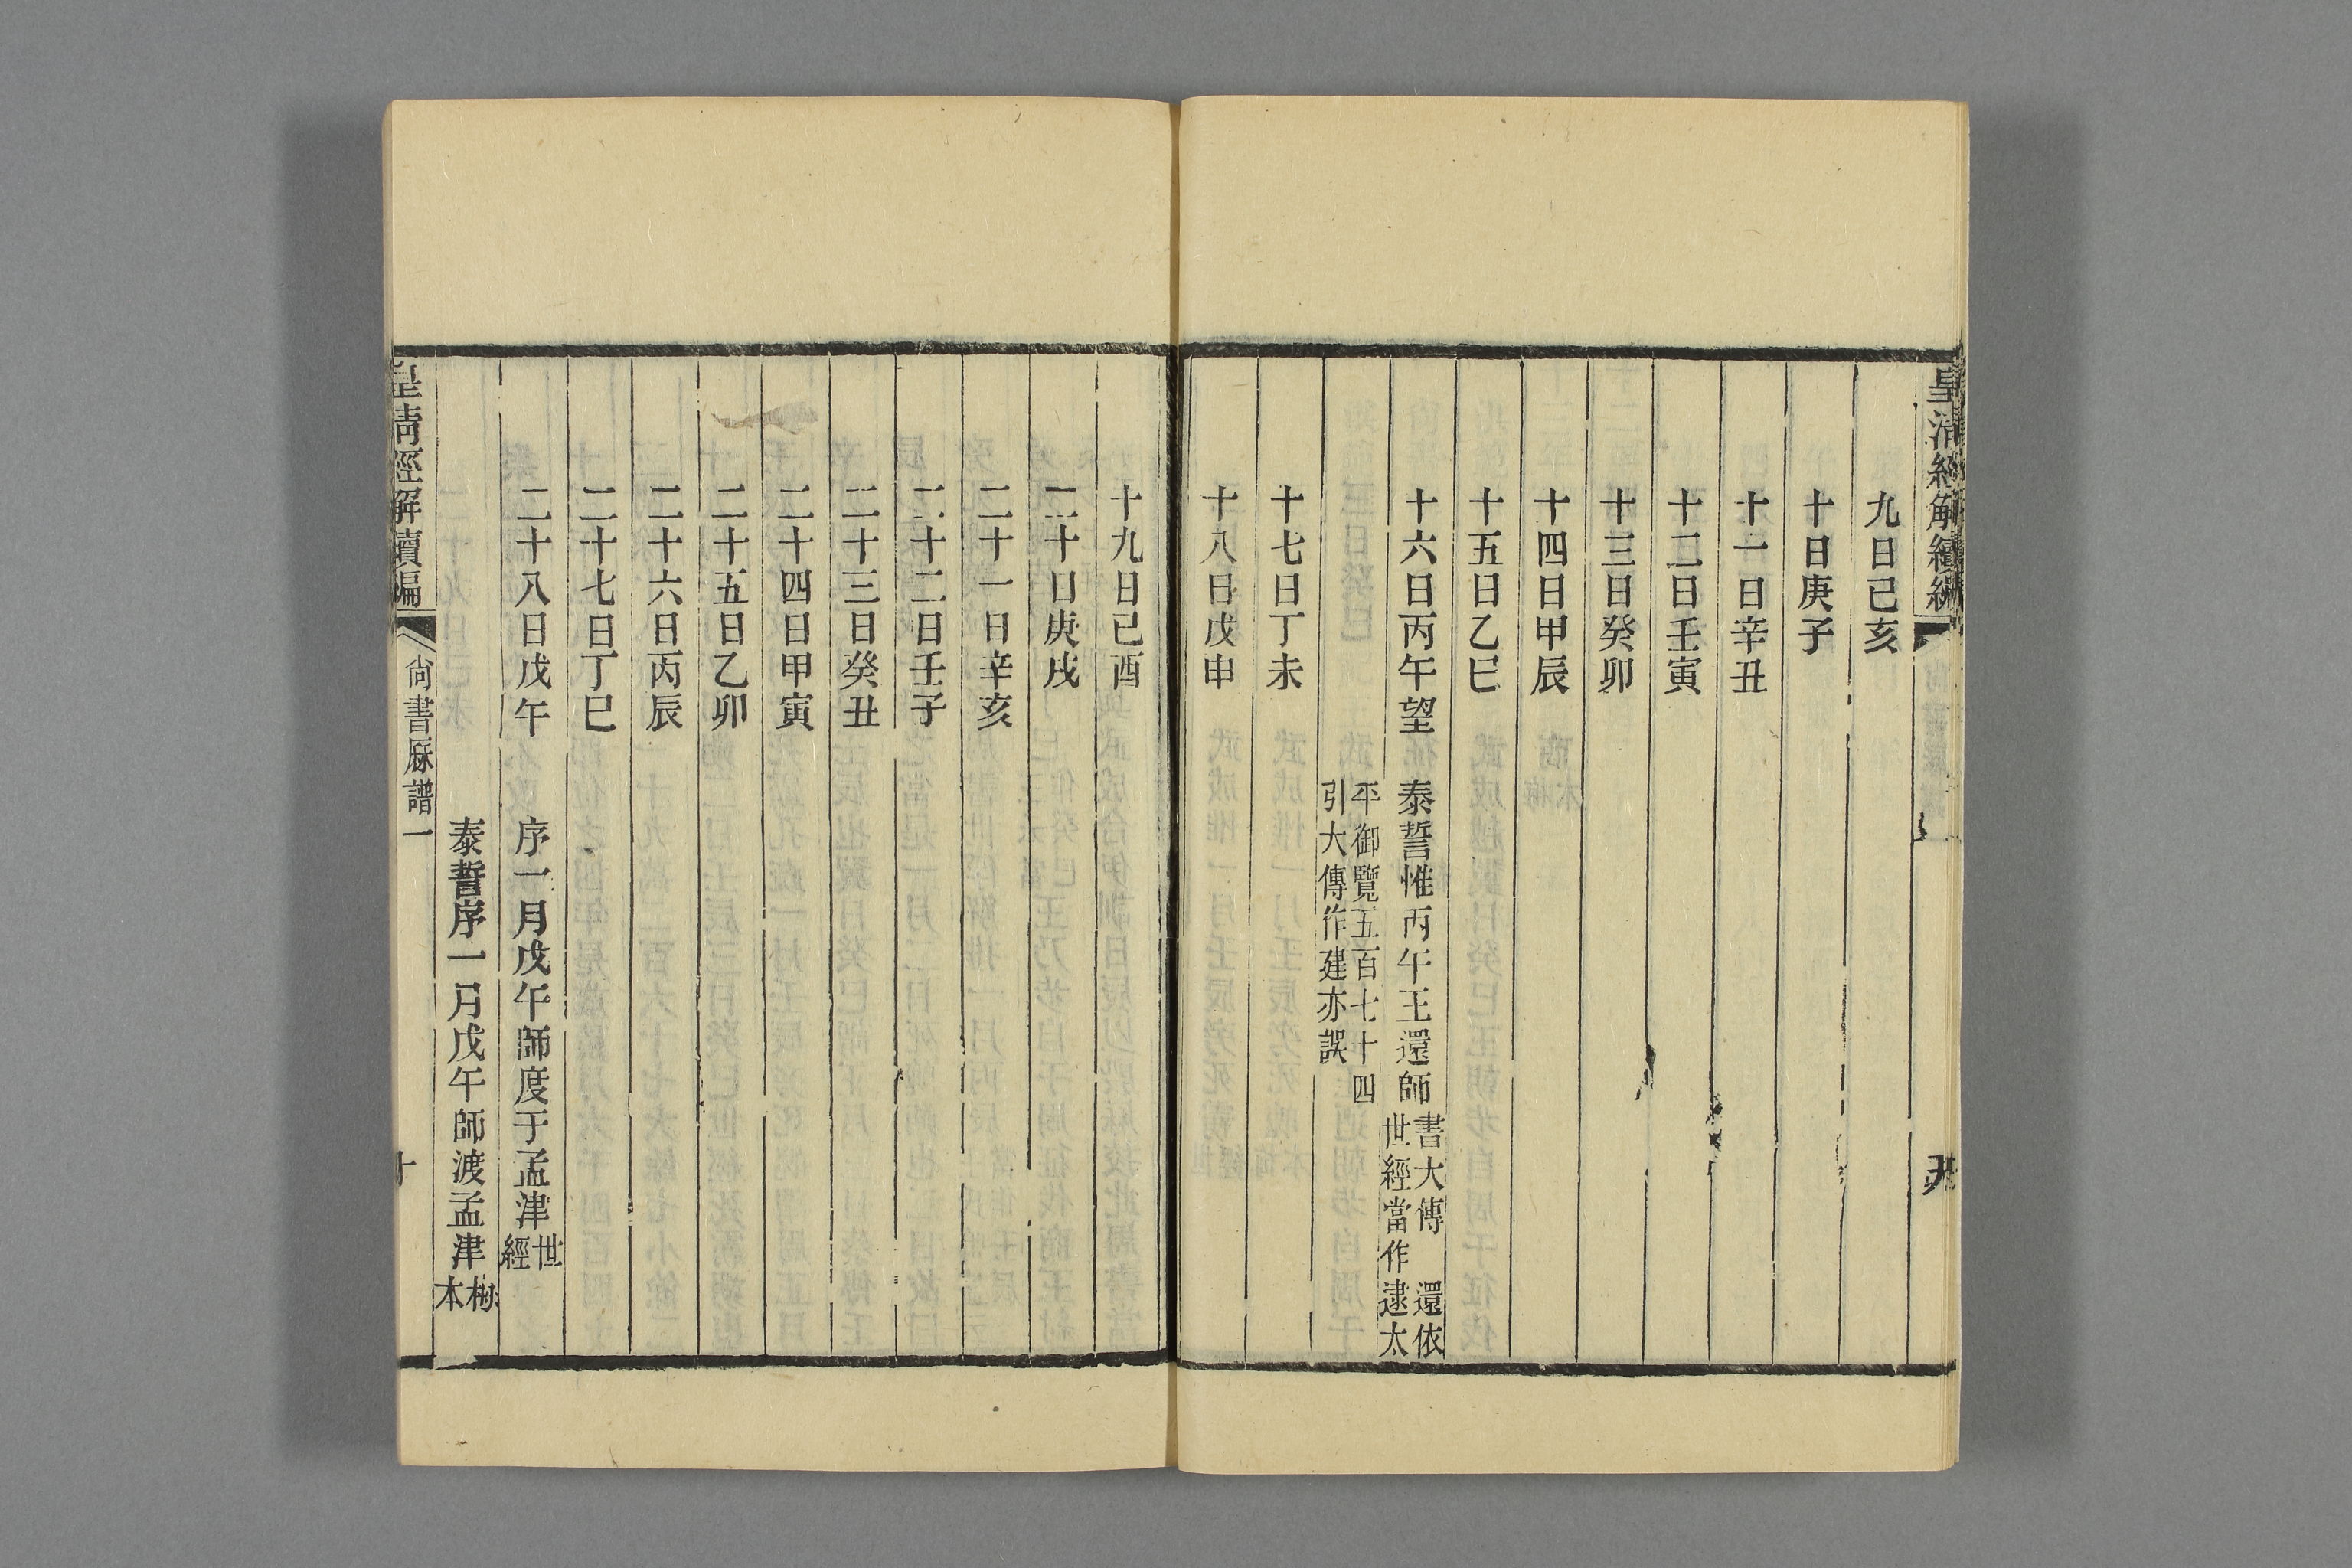 皇清經解續編
九日己亥
十日庚子
十一日辛丑
十二日壬寅
十三日癸卯
十四日甲辰
十五日乙巳
十六日丙午望 泰誓惟丙午王還師 書大傳 還依
世經當作逮太
平御覽五百七十四
引大傳作建亦誤
十七日丁未
十八日戊申
十九日己酉
二十日庚戌
二十一日辛亥
二十二日壬子
二十三日癸丑
二十四日甲寅
二十五日乙卯
二十六日丙辰
二十七日丁巳
二十八日戊午 序一月戊午師度于孟津 世
經
泰誓序一月戊午師渡孟津 梅
本
皇清經解續編 尙書厤譜一 十